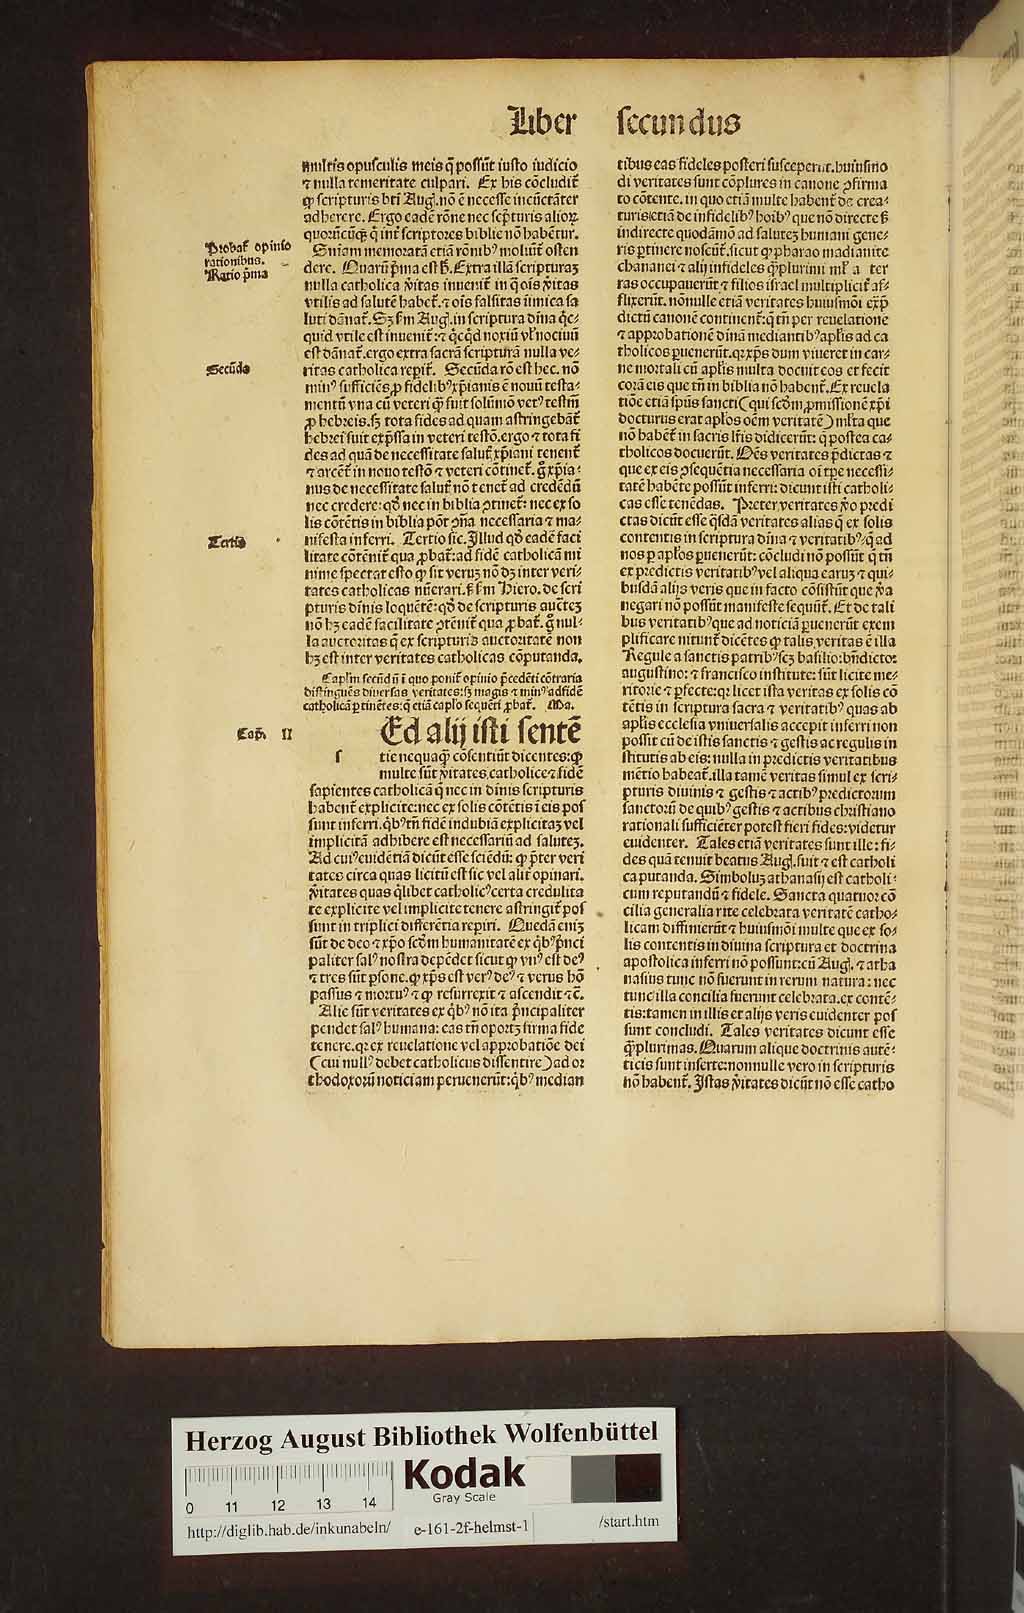 Liber secundus
multis opusculis meis q̄ possūt iusto iudicio
⁊ nulla temeritate culpari. Ex his cōcludit̄
ꝙ scripturis bti Aug. nō ē necesse incūctāter
adherere. Ergo eadē rōne nec scp̄turis alioꝝ
quorūcūqꝫ q̄ int̄ scriptores biblie nō habētur.
Probat̄ opinio
rationibus.
Ratio p̄ma
Sniam memoratā etiā rōnibꝰ moliūt̄ osten
dere. Quarū p̄ma est h̄. Extra illā scripturaꝫ
nulla catholica v̄itas inuenit̄ in q̄ ois v̄itas
vtilis ad salutē habet̄. ⁊ ois falsitas inimica sa
luti dānat̄. Sꝫ ẜm Aug. in scriptura dīna q̇c-
quid vtile est inuenit̄: ⁊ q̇cq̇d noxiū vl̓ nociuū
est dānat̄. ergo extra sacrā scripturā nulla ve-
Secūda
ritas catholica repit̄. Secūda rō est hec. nō
minꝰ sufficiēs ꝓ fidelibꝰ xp̄ianis ē nouū testa-
mentū vna cū veteri q̄ꝫ fuit solūmō vetꝰ testm̄
ꝓ hebreis. sꝫ tota fides ad quam astringebāt̄
hebrei fuit exp̄ssa in veteri testō. ergo ⁊ tota fi
des ad quā de necessitate salut̄ xp̄iani tenent̄
⁊ arcēt̄ in nouo testō ⁊ veteri cōtinet̄. g̊ xp̄ia-
nus de necessitate salut̄ nō tenet̄ ad credēdū
nec credere: qd̓ nec in biblia ꝯtinet̄: nec ex so
lis cōtētis in biblia pōt ꝯn̄a necessaria ⁊ ma-
Tertio
nifesta inferri. Tertio sic. Illud qd̓ eadē faci
litate cōtēnit̄ qua ꝓbat̄: ad fidē catholicā mi
nime spectat esto ꝙ sit veruꝫ nō dꝫ inter veri-
tates catholicas nūerari. s̓ ẜm Hiero. de scri
pturis dīnis loquētē: qd̓ de scripturis auctēꝫ
nō hꝫ eadē facilitate ꝯtēnit̄ qua ꝓbat̄. g̊ nul-
la auctoritas q̄ ex scripturis auctoritatē non
hꝫ est inter veritates catholicas cōputanda.
Capl̓m secūdū i quo ponit̄ opinio p̄cedēti cōtraria
distinguēs diuersas veritates: sꝫ magis ⁊ minꝰ ad fidē
catholicā ꝑtinētes: q̄ etiā caplo sequēti ꝓbat̄. Ma.
Cap̄. II
s
Ed alij isti sentē
tie nequaqꝫ cōsentiūt dicentes: ꝙ
multe sūt v̄itates catholice ⁊ fidē
sapientes catholicā q̄ nec in dīnis scripturis
habent̄ explicite: nec ex solis cōtētis ī eis pos
sunt inferri. q̇bꝰ tn̄ fidē indubiā explicitaꝫ vel
implicitā adhibere est necessariū ad saluteꝫ.
Ad cuiꝰ euidētiā dicūt esse sciēdū: ꝙ p̄ter veri
tates circa quas licitū est sic vel alit̄ opinari.
v̄itates quas q̇libet catholicꝰ certa credulita
te explicite vel implicite tenere astringit̄ pos
sunt in triplici differētia reꝑiri. Quedā eniꝫ
sūt de deo ⁊ xp̄o scd̓m humanitatē ex q̇bꝰ p̄nci
paliter salꝰ nostra depēdet sicut ꝙ vnꝰ est deꝰ
⁊ tres sūt ꝑsone. ꝙ xp̄s est verꝰ deꝰ ⁊ verus hō
passus ⁊ mortuꝰ ⁊ ꝙ resurrexit ⁊ ascendit ⁊c.
Alie sūt veritates ex q̇bꝰ nō ita p̄ncipaliter
pendet salꝰ humana: eas tn̄ oportꝫ firma fide
tenere. qꝛ ex reuelatione vel approbatiōe dei
(cui nullꝰ debet catholicus dissentire) ad or
thodoxorū noticiam peruenerūt: q̇bꝰ median
tibus eas fideles posteri susceperūt. huiusmo
di veritates sunt cōplures in canone ꝯfirma
to cōtente. in quo etiā multe habent̄ de crea-
turis: etiā de infidelibꝰ hoībꝰ que nō directe s̓
indirecte quodāmō ad saluteꝫ humani gene-
ris ꝑtinere noscūt̄. sicut ꝙ pharao madianite
chananei ⁊ alij infideles q̄plurimi
ras occupauerūt ⁊ filios israel multiplicit̄ af-
flixerūt. nōnulle etiā veritates huiusmōi ext̄
dictū canonē continent̄: q̄ tn̄ per reuelatione
⁊ approbationē dīnā mediantibꝰ apl̓is ad ca
tholicos ꝑuenerūt. qꝛ xp̄s dum viueret in car-
ne mortali cū apl̓is multa docuit eos ⁊ fecit
corā eis que tn̄ in biblia nō habent̄. Ex reuela
tiōe etiā sp̄us sancti (qui scd̓m ꝓmissionē xp̄i
docturus erat apl̓os oēm veritatē) ml̓ta que
nō habēt̄ in sacris lr̄is didicerūt: q̄ postea ca-
tholicos docuerūt. Oēs veritates p̄dictas ⁊
que ex eis ꝯsequētia necessaria oi tꝑe necessi-
tatē habēte possūt inferri: dicunt isti catholi-
cas esse tenēdas. Preter veritates v̄o predi
ctas dicūt esse q̄sdā veritates alias q̄ ex solis
contentis in scriptura dīna ⁊ veritatibꝰ q̄ ad
nos ꝑ apl̓os ꝑuenerūt: cōcludi nō possūt q̄ tn̄
ex predictis veritatibꝰ vel aliqua earuꝫ ⁊ qui-
busdā alijs veris que in facto cōsistūt que v̄a
negari nō possūt manifeste sequūt̄. Et de tali
bus veritatibꝰ que ad noticiā ꝑuenerūt exem
plificare nitunt̄ dicētes ꝙ talis veritas ē illa
Regule a sanctis patribꝰ scꝫ basilio: bn̄dicto:
augustino: ⁊ francisco institute: sūt licite me-
ritorie ⁊ ꝑfecte: qꝛ licet ista veritas ex solis cō
tētis in scriptura sacra ⁊ veritatibꝰ quas ab
apl̓is ecclesia vniuersalis accepit inferri non
possit cū de istis sanctis ⁊ gestis ac regulis in
stitutis ab eis: nulla in predictis veritatibus
mētio habeat̄. illa tamē veritas simul ex scri-
pturis diuinis ⁊ gestis ⁊ actibꝰ predictorum
sanctorū de quibꝰ gestis ⁊ actibus christiano
rationali sufficiēter potest fieri fides: videtur
euidenter. Tales etiā veritates sunt ille: fi-
des quā tenuit beatus Aug. fuit ⁊ est catholi
ca putanda. Simboluꝫ athanasij est catholi-
cum reputandū ⁊ fidele. Sancta quatuor cō
cilia generalia rite celebrata veritatē catho-
licam diffinierūt ⁊ huiusmōi multe que ex so-
lis contentis in diuina scriptura et doctrina
apostolica inferri nō possunt: cū Aug. ⁊ atha
nasius tunc nō fuerunt in rerum natura: nec
tunc illa concilia fuerunt celebrata. ex contē-
tis: tamen in illis et alijs veris euidenter pos
sunt concludi. Tales veritates dicunt esse
q̄plurimas. Quarum alique doctrinis autē-
ticis sunt inserte: nonnulle vero in scripturis
nō habent̄. Istas v̄itates dicūt nō esse catho
Herzog August Bibliothek Wolfenbüttel
Kodak
Gray Scale
0 11 12 13 14
http://diglib.hab.de/inkunabeln/ e-161-2f-helmst-1 /start.htm